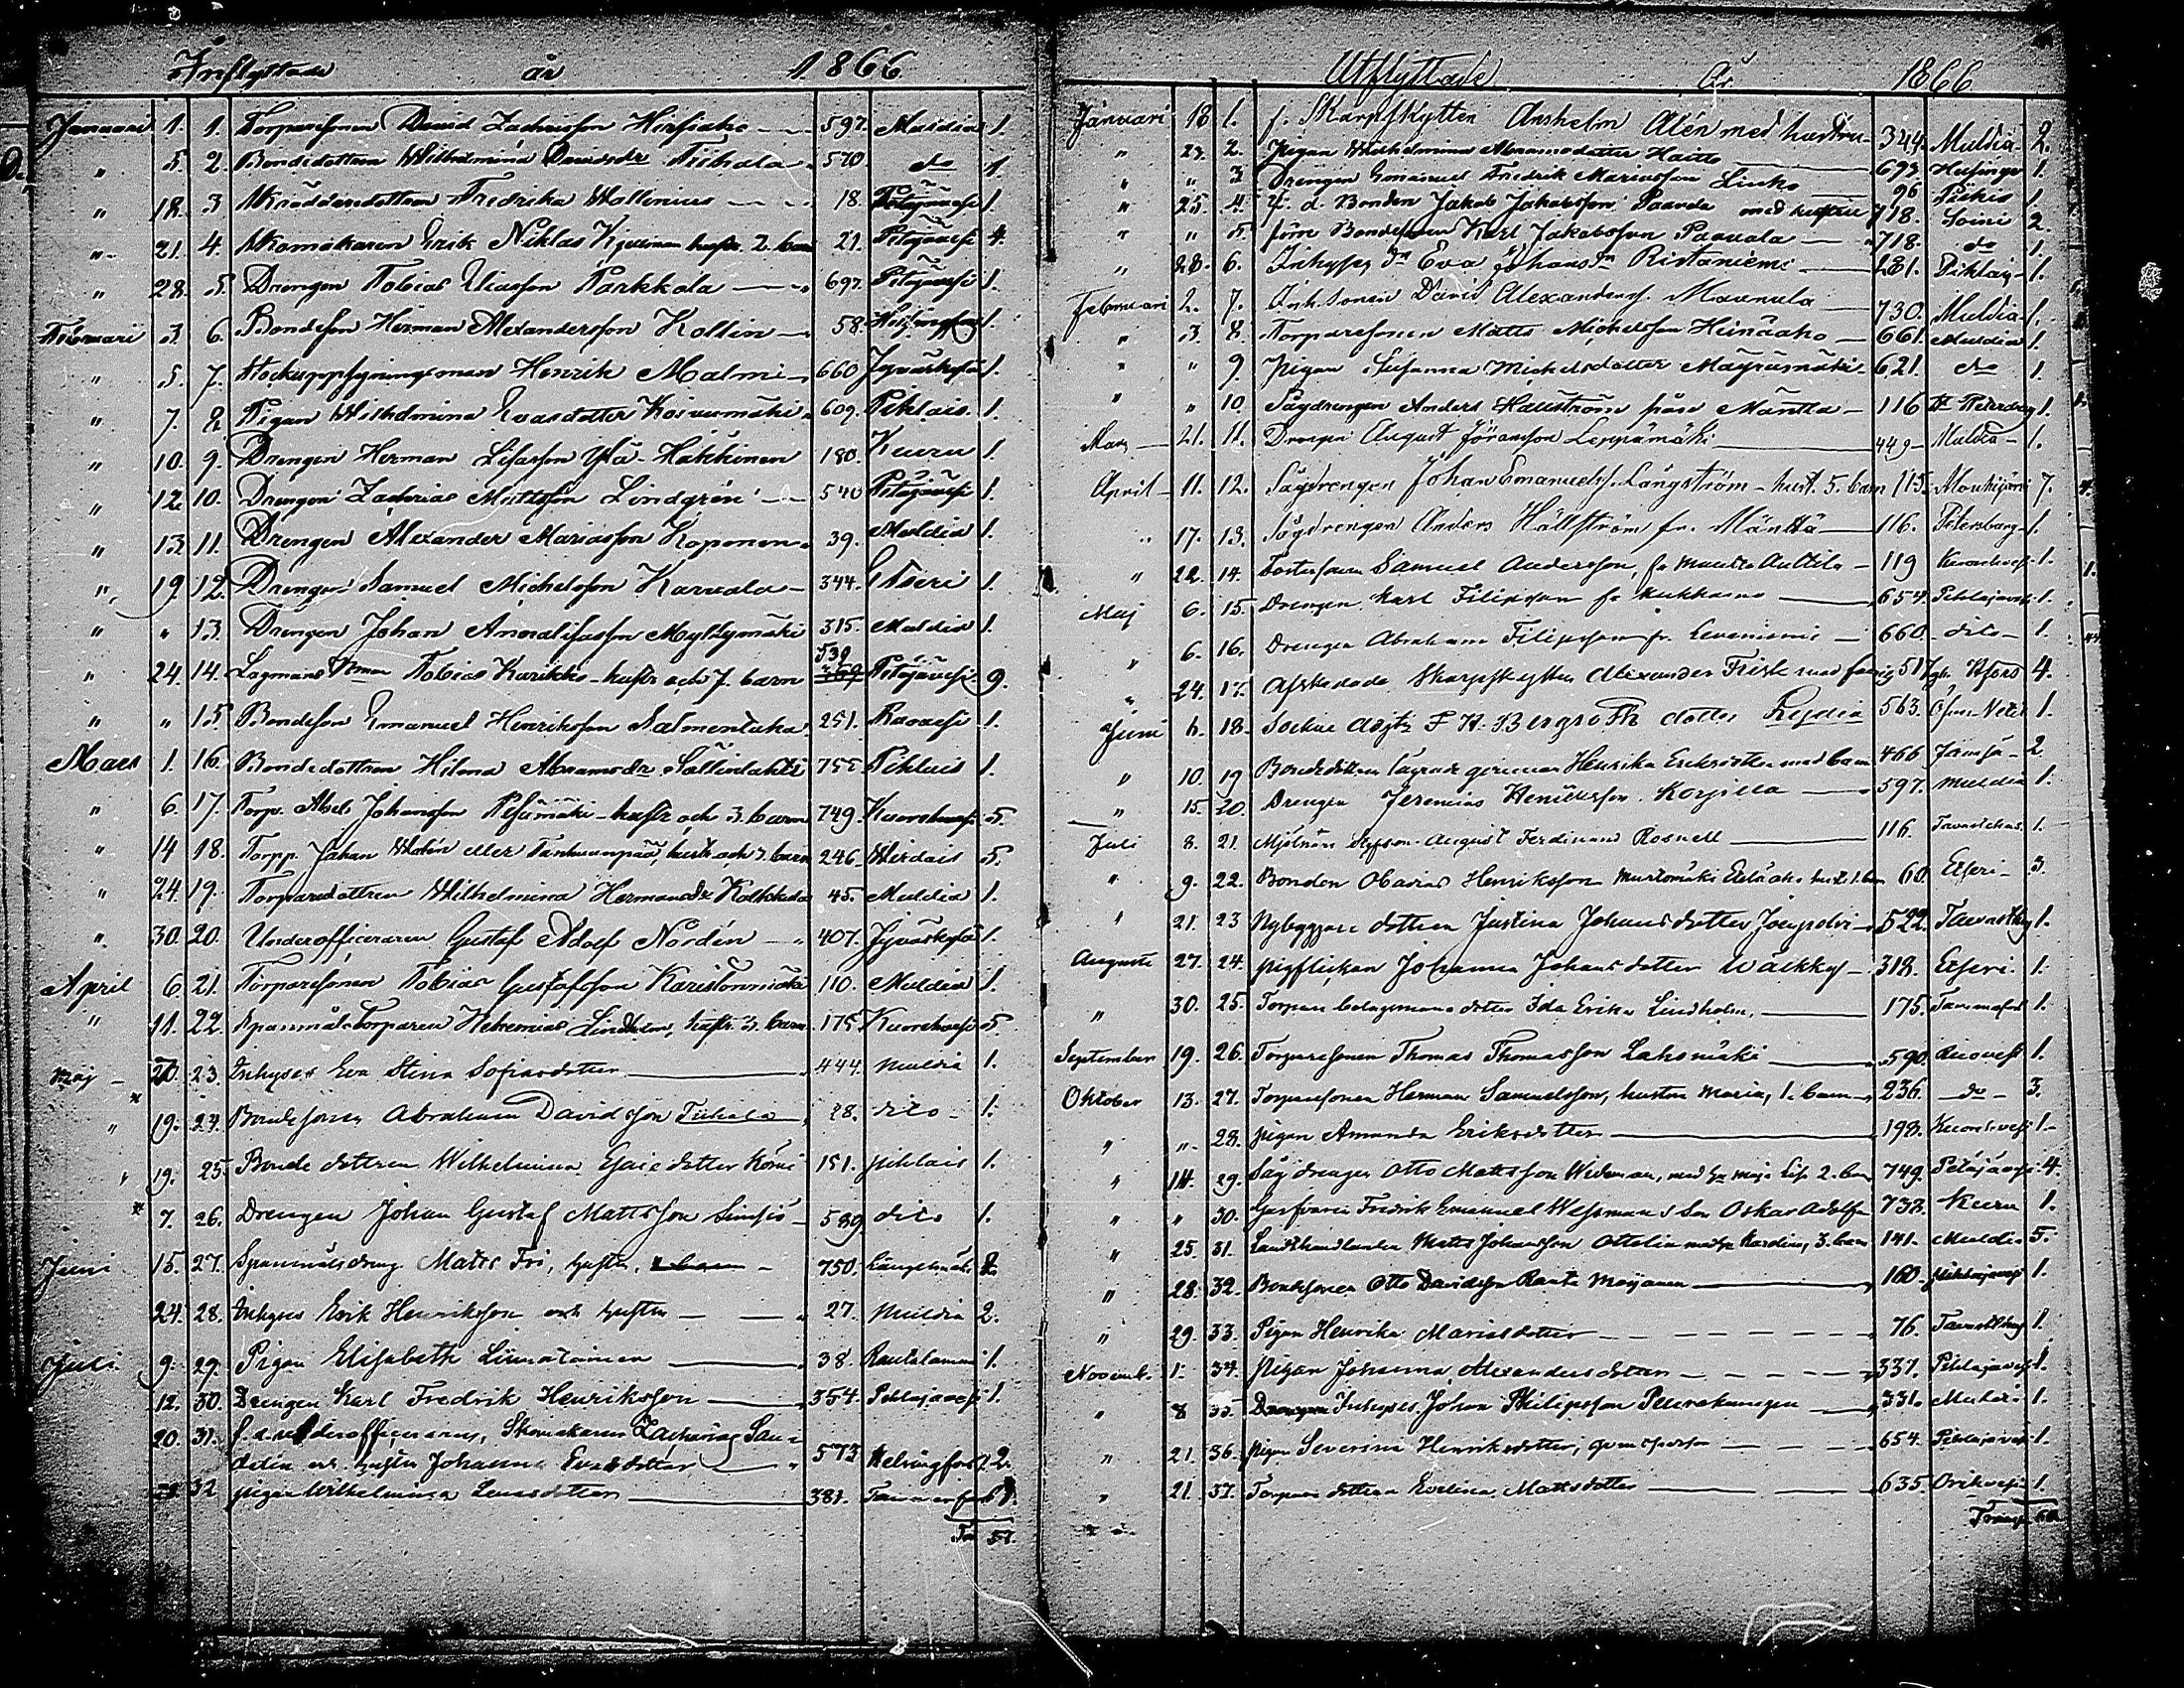 Inflyttade år 1866
Januari 1. 1. Torparesonen David Zachrisson Hirsiaho 597. Muldia 1.
" 5. 2. Bondedottren Wilhelmina Davidsdr Tiihala 570 do 1
" 18. 3 Fredrika Wallenius 18. Petäjävesi 1.
" 21. 4. Erik Niklas hustr. 2. barn 21. Petäjävesi 4.
" 28. 5. Drengen Tobias Eliasson Parkkola 697. Petäjävesi 1.
Februari 3. 6. Bondeson Herman Alexandersson Kollin 58. Helsingfors 1.
" 5. 7. Henrik Malmi 660 Jyväskylä 1.
" 7. 8. Pigan Wilhelmina Evasdotter Koivumäki 609. Piklais. 1.
" 10. 9. Drengen Herman Lisasson Ylä-Häkkinen 180. Keuru 1.
" 12. 10. Drengen Zacharias Mattsson Lindgrén 540 Petäjävesi 1.
" 13. 11. Drengen Alexander Mariasson Koponen 39. Muldia 1.
" 19. 12. Drengen Samuel Michelsson Karvala 344. Etseri 1.
" " 13. Drengen Johan Amalisasson Myllymäki 315. Muldia 1.
" 24. 14. Tobias Kurikko hustr och 7. barn 539 Petäjävesi 9.
" " 15 Bondeson Emanuel Henriksson Salmentaka 251. Ruovesi 1.
Mars 1. 16. Bondedottren Hilma Abramsdr Sällinlahti 755 Piklais 1.
" 6. 17. Torp. Abel Johansson hustr och 3. barn 749. Kuorehvesi 5.
" 14 18. Torpp. Johan eller hustr och 3. barn 246. Wirdois 5.
" 24. 19. Torparedottren Wilhelmina Hermansdr 45. Muldia 1.
" 30. 20. Underofficeraren Gustaf Adolf Nordén 407. Jyväskylä 1.
April 6. 21. Torparesonen Tobias Gustafsson Karistonmäki 110. Muldia 1.
" 11. 22. Spanmålstorparen Nehemias Lindholm, hustr. 3. barn 175 Kuorehvesi 5.
Maj 20. 23. Inhyses Eva Stina Sofiasdotter 444. Muldia 1.
" 19. 24. Bondesonen Abraham Davidsson Tiihala 28. dito 1.
" 19. 25. Bondedottren Wilhelmina Esaiedotter 151. Piklais 1.
" 7. 26. Drengen Johan Gustaf Mattsson Simsiö 589. dito 1.
Juni 15. 27. Spanmålsdreng. Matts Fri, hustru, 750. Längelmäki 2
24. 28. Inhyses Erik Henriksson och hustru 27. Muldia 2.
Juli 9. 29. Pigan Elisabeth Liimatainen 38. Rautalammi 1.
12. 30. Drengen Karl Fredrik Henriksson 354. Petäjävesi 1.
20. 31. f.d. underofficeraren, Skomakaren Zacharias San-
delin och hustru Johanna Evasdotter 573 Helsingfors 2.
32 pigan Wilhelmina Lenasdotter 381. Tammerfors 1.
57.
Utflyttade År 1866
Januari 18 1. f. Skarpskytten Anshelm Alén med hustru 344. Muldia 2.
" 23. 2. Pigan Wilhelmina Abramsdotter Haitto 693. Helsingfors 1.
" " 3. Drengen Emanuel Fredrik Mariasson Linko 96 1
" 25. 4. F. d. Bonden Jakob Jakobsson Paavola med hustru 718. Soini 2.
" " 5. förre Bondesonen Karl Jakobsson Paavola 718. do 1.
" 28. 6. Inhyses dr Eva Johansdr Ristaniemi 281. Piklaj 1.
Februari 2. 7. David Alexanderss. Maunula 730. Muldia 1.
" 3 8. Torparesonen Matts Michelsson Heinäaho 661. Muldia 1.
" " 9. Pigan Susanna Michelsdotter Mäyrämäki 621. do 1.
" " 10 Sågdrengen Anders Hällström från Mänttä 116 St Petersburg 1.
Mars 21. 11. Drengen August Göransson Leppämäki 449 Muldia 1.
April 11. 12. Sågdrengen Johan Emanuelss. Långström hust. 5. barn 115. Mouhijärvi 7.
" 17. 13. Sågdrengen Anders Hällström fr. Mänttä 116. Petersburg 1.
" 22. 14. Samuel Andersson, fr Anttila 119 Kuorehvesi 1.
Maj 6. 15. Drengen Karl Filipsson fr 654. Petäjävesi 1.
" 6. 16. Drengen Abraham Filipsson fr. Levaniemi 660. dito 1.
" 24. 17. Afskedade Skarpskytten Alexander Frisk med familj 517 4.
Juni 18. Bergroth dotter Lydia 563. 1.
" 10. 19 Bondedottren Henrika Eriksdotter med barn 466 Jämsä 2.
" 15. 20. Drengen Jeremias Henriksson Korpilla 597. Muldia 1.
Juli 8. 21. August Ferdinand Rosnell 116. Tavastehus. 1.
" 9. 22. Bonden Obadias Henriksson hustr 1. barn 60. Etseri 3.
" 21. 23 Nybyggare dottren Justina Johansdotter 522. 1.
Augusti 27. 24. pigflickan Johanna Johansdotter Wälkky 318. Etseri 1.
" 30. 25. Torpare bolagsmans dotter Ida Erika Lindholm, 175. Tammerfors 1.
September 19. 26. Torparesonen Thomas Thomasson Lahomäki 590. Ruovesi 1.
Oktober 13. 27. Torparesonen Herman Samuelsson, hustru Maria, 1. barn 236. do 3.
" " 28. pigan Amanda Eriksdotter 198. Kuorehvesi 1.
" 14. 29. Sågdrengen Otto Mattsson Wideman, med hr Maja Lisa 2. barn 749. Petäjävesi 4.
" " 30. Garfvaren Fredrik Emanuel Wessmans son Oskar Adolf 738. Keuru 1.
" 25. 31. Landthandlanden Matts Johansson Ottelin 3. barn 141. Muldia 5.
" 28. 32. Bondesonen Otto Davidsson 160. Petäjävesi 1.
" 29. 33. Pigan Henrika Mariasdotter 76. 1.
Novemb. 1. 34. Pigan Johanna Alexandersdotter 337. Petäjävesi 1.
" 8 35. Inhyses Johan Philipsson 331. Muldia 1.
" 21. 36. Pigan Severina Henriksdotter, 654. Petäjävesi 1.
" 21. 37. Torpare dottren Evelina Mattsdotter 635. Orihvesi 1.